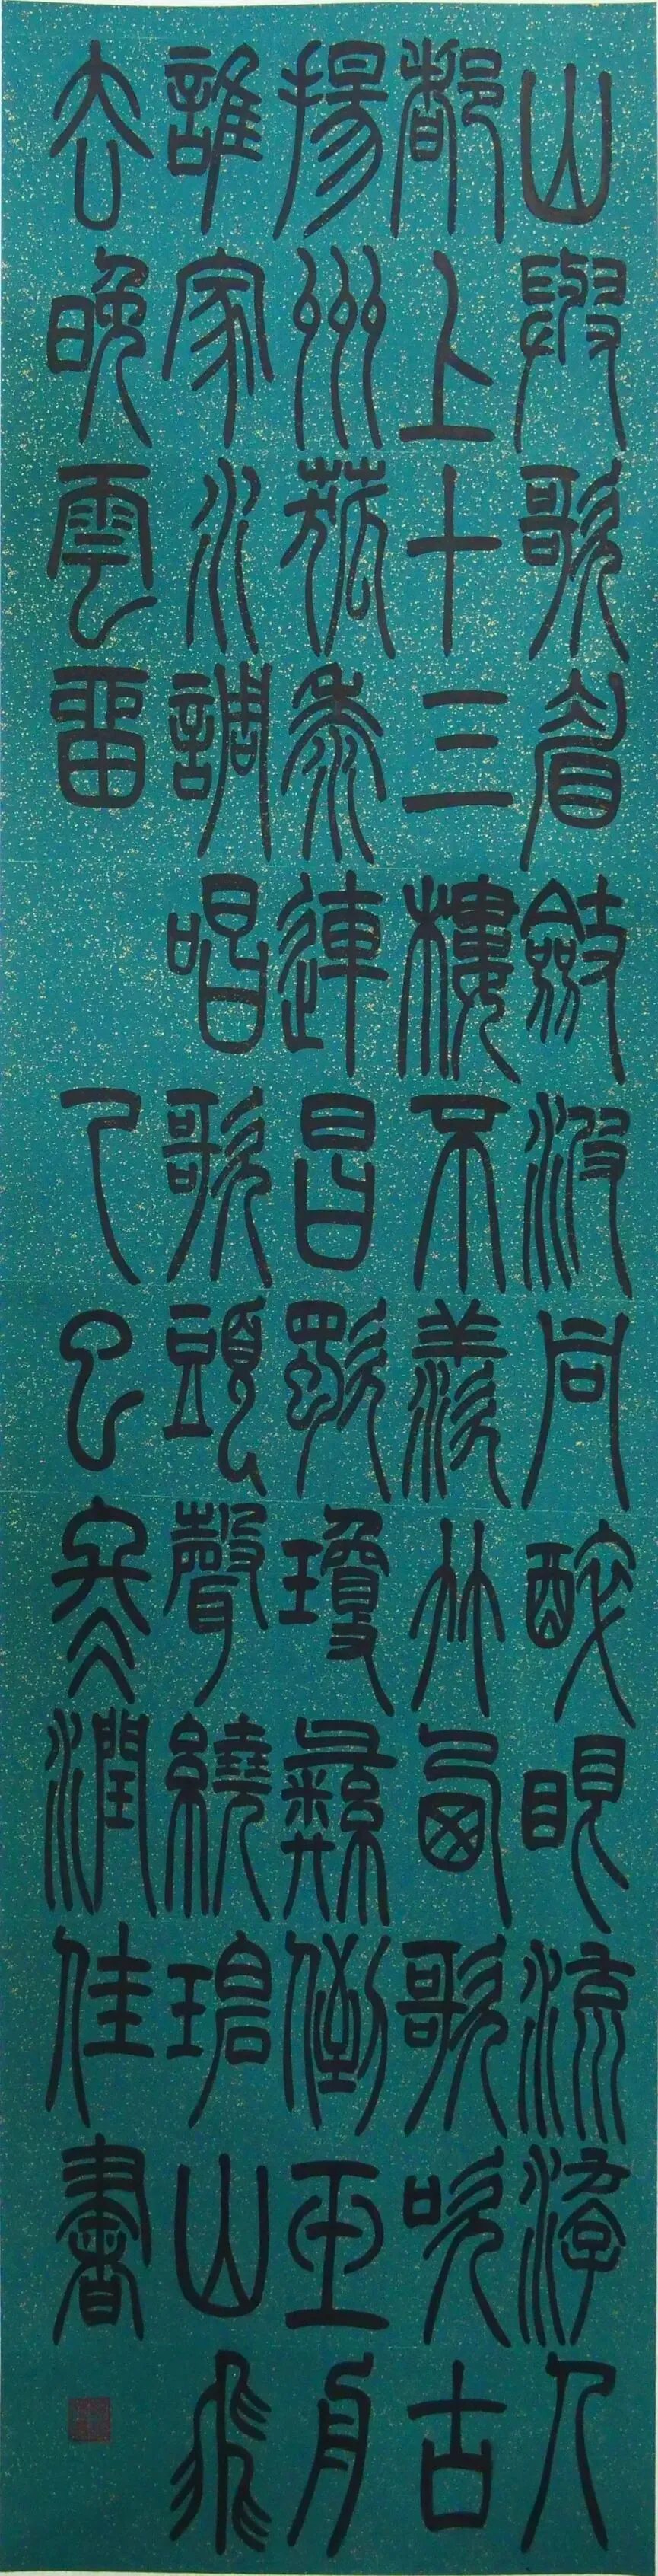 山與歌眉斂波同醉眼流游人
都上十三樓不羨竹西歌吹古
揚州菰黍連昌歜瓊彝倒玉舟
誰家水調唱歌頭聲繞碧山飛
去晚雲留 乙巳冬潤佳書